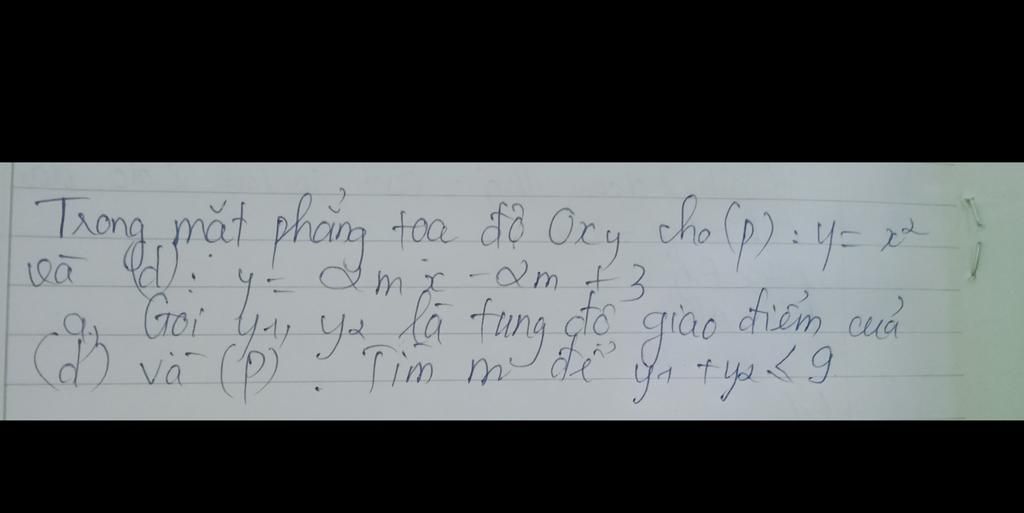 Trong mặt phẳng tọa độ Oxy cho (p): y = x²
và (d): y = 2mx - 2m + 3
a, Gọi y1, y2 là tung độ giao điểm của
(d) và (p). Tìm m để y1 + y2 < 9